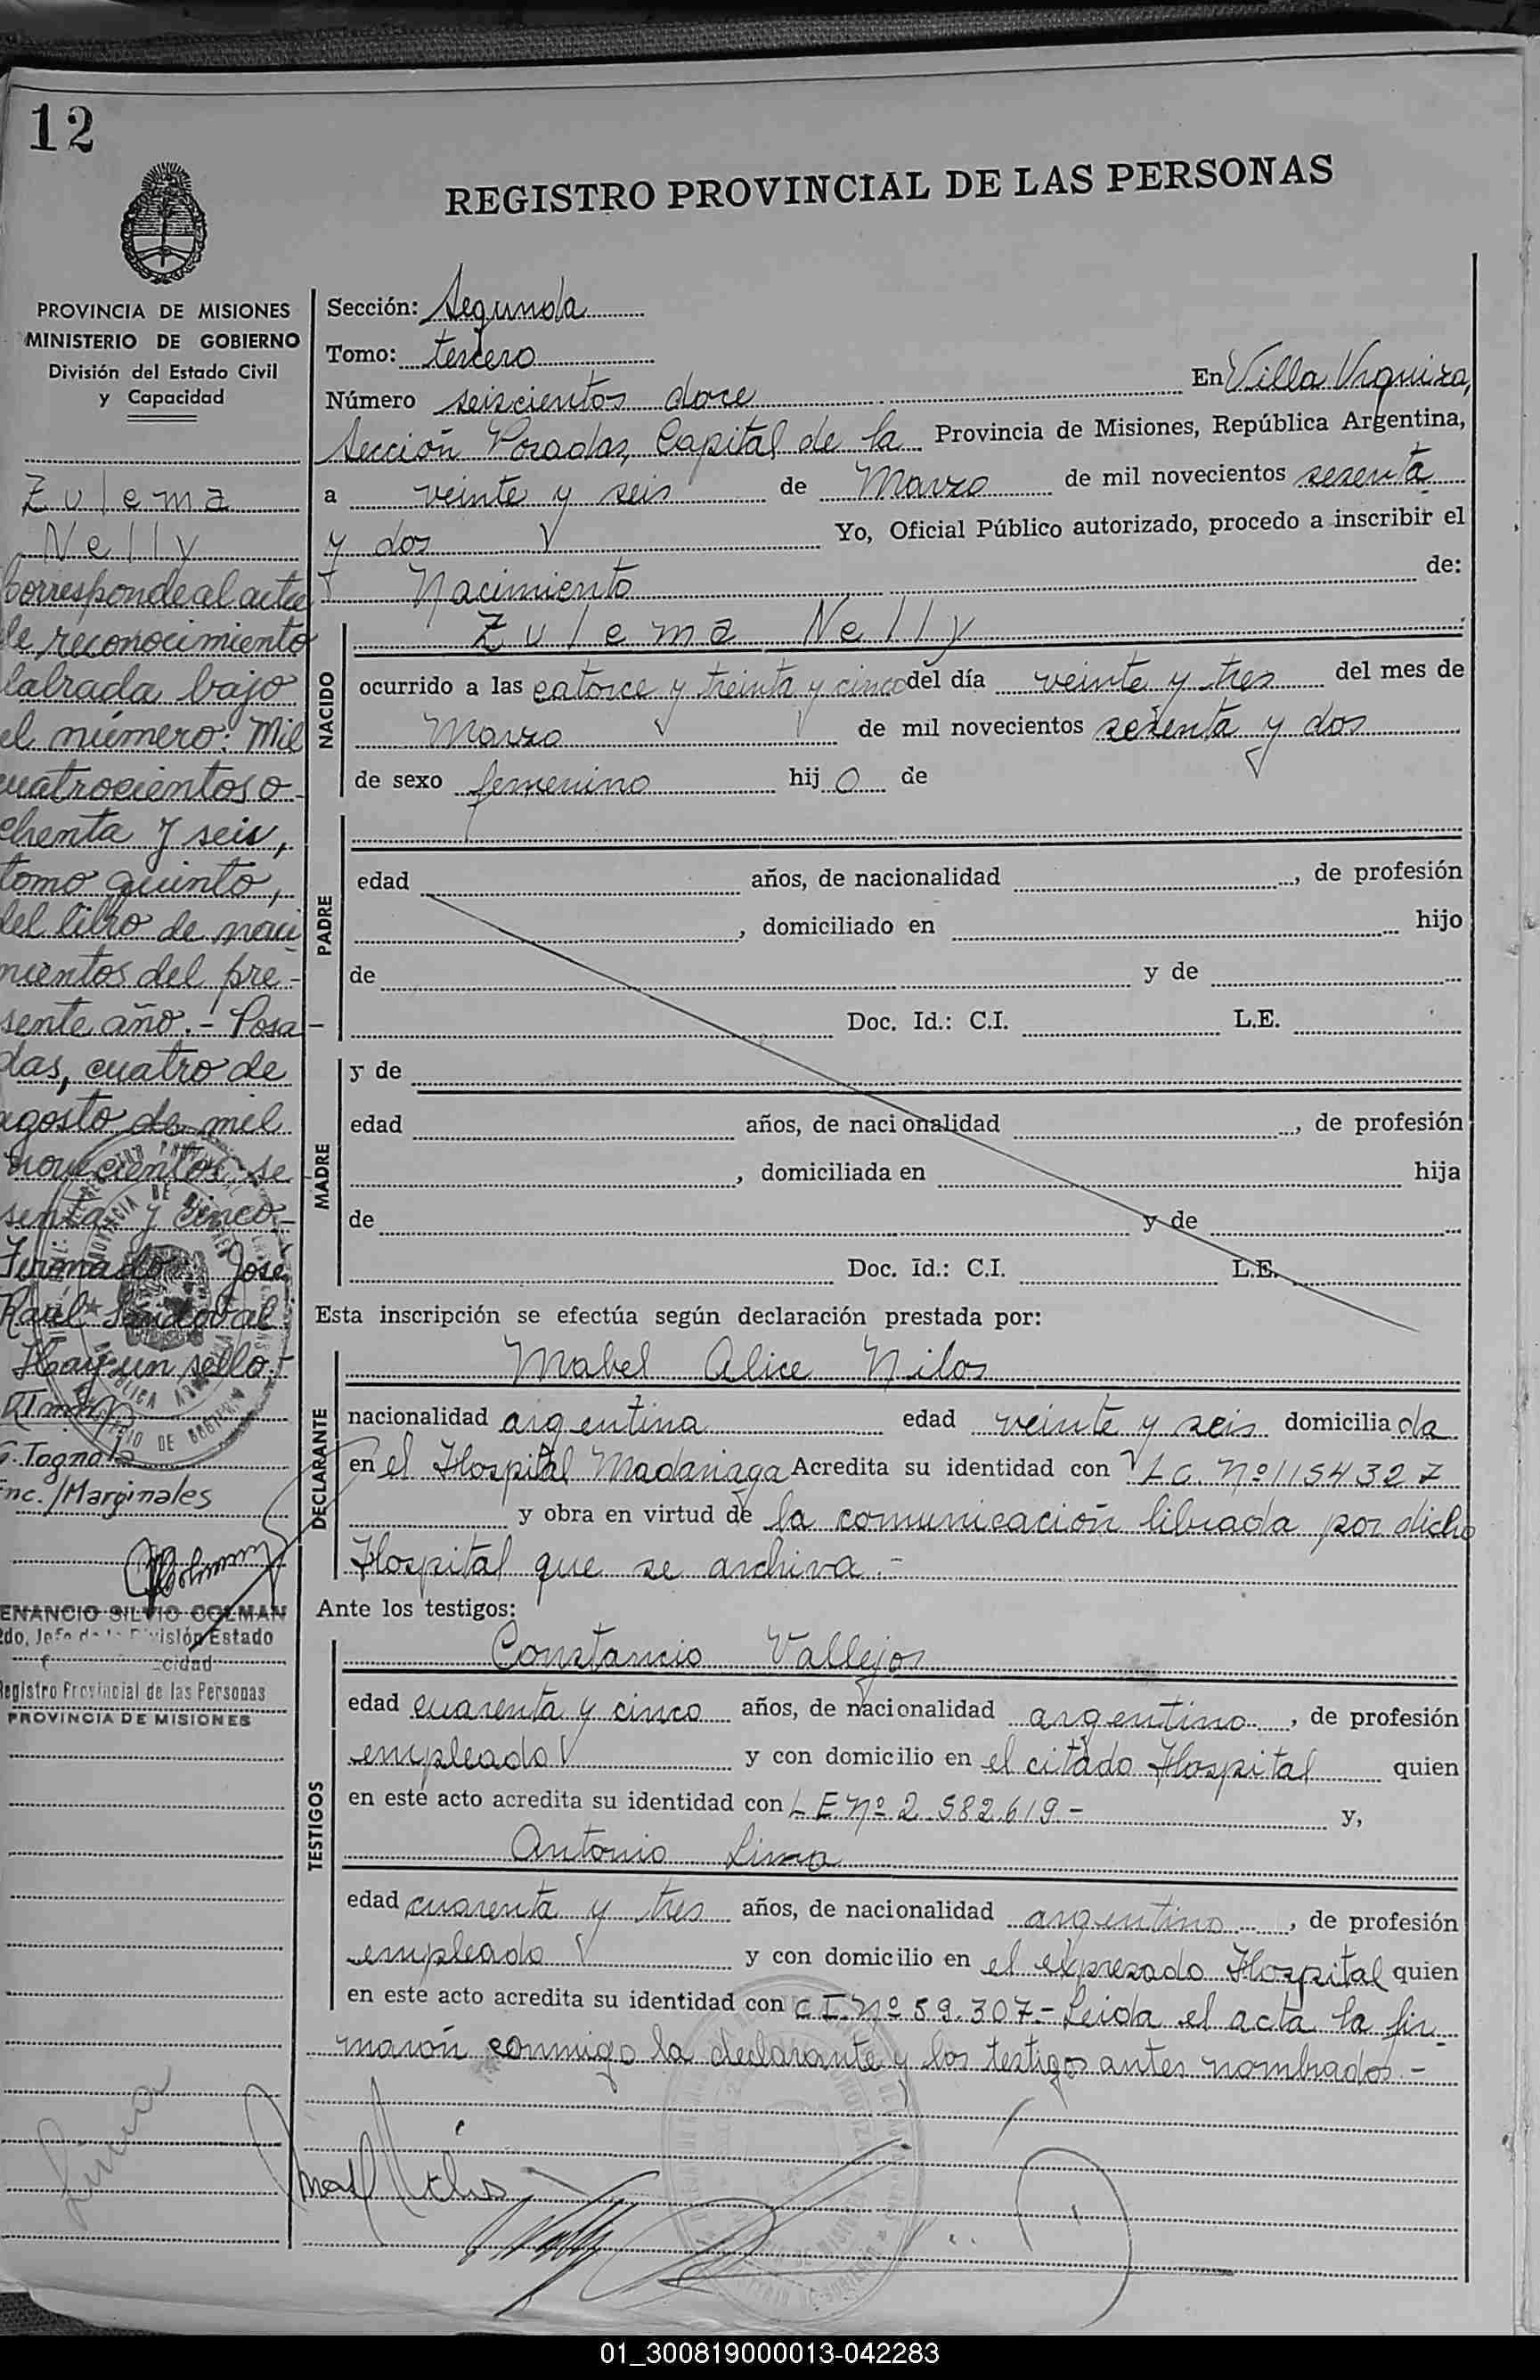 12
REGISTRO PROVINCIAL DE LAS PERSONAS
PROVINCIA DE MISIONES
MINISTERIO DE GOBIERNO
División del Estado Civil
y Capacidad
Zulema
Nelly
Corresponde al acta
de reconocimiento
labrada bajo
el número: Mil
cuatrocientos o
chenta y seis,
tomo quinto,
del libro de naci
mientos del pre-
sente año.- Posa-
das, cuatro de
agosto de mil
novecientos se
senta y cinco.-
Firmado: José
Raúl Sandoval
Hay un sello.-
G. Togna
Enc./Marginales
VENANCIO SILVIO COLMAN
2do. Jefe de la División Estado
cidad
Registro Provincial de las Personas
PROVINCIA DE MISIONES
Lima
Sección: Segunda
Tomo: tercero
Número seiscientos doce En Villa Urquiza,
Sección Posadas, Capital de la Provincia de Misiones, República Argentina,
a veinte y seis de Marzo de mil novecientos sesenta
y dos Yo, Oficial Público autorizado, procedo a inscribir el
Nacimiento de:
NACIDO
Zulema Nelly
ocurrido a las catorce y treinta y cinco del día veinte y tres del mes de
Marzo de mil novecientos sesenta y dos
de sexo femenino hij o de
PADRE
edad años, de nacionalidad , de profesión
, domiciliado en hijo
de y de
Doc. Id.: C.I. L.E.
MADRE
y de
edad años, de nacionalidad , de profesión
, domiciliada en hija
de y de
Doc. Id.: C.I. L.E.
Esta inscripción se efectúa según declaración prestada por:
DECLARANTE
Mabel Alice Nilos
nacionalidad argentina edad veinte y seis domicilia da
en el Hospital Madariaga Acredita su identidad con L C. Nº 1154327
y obra en virtud de la comunicación librada por dicho
Hospital que se archiva.-
Ante los testigos:
TESTIGOS
Constancio Vallejos
edad cuarenta y cinco años, de nacionalidad argentino , de profesión
empleado y con domicilio en el citado Hospital quien
en este acto acredita su identidad con L E Nº 2.582.619.- y,
Antonio Lima
edad cuarenta y tres años, de nacionalidad argentino , de profesión
empleado y con domicilio en el expresado Hospital quien
en este acto acredita su identidad con C I. Nº 59.307.- Leida el acta la fir
marón conmigo la declarante y los testigos antes nombrados.-
01_300819000013-042283